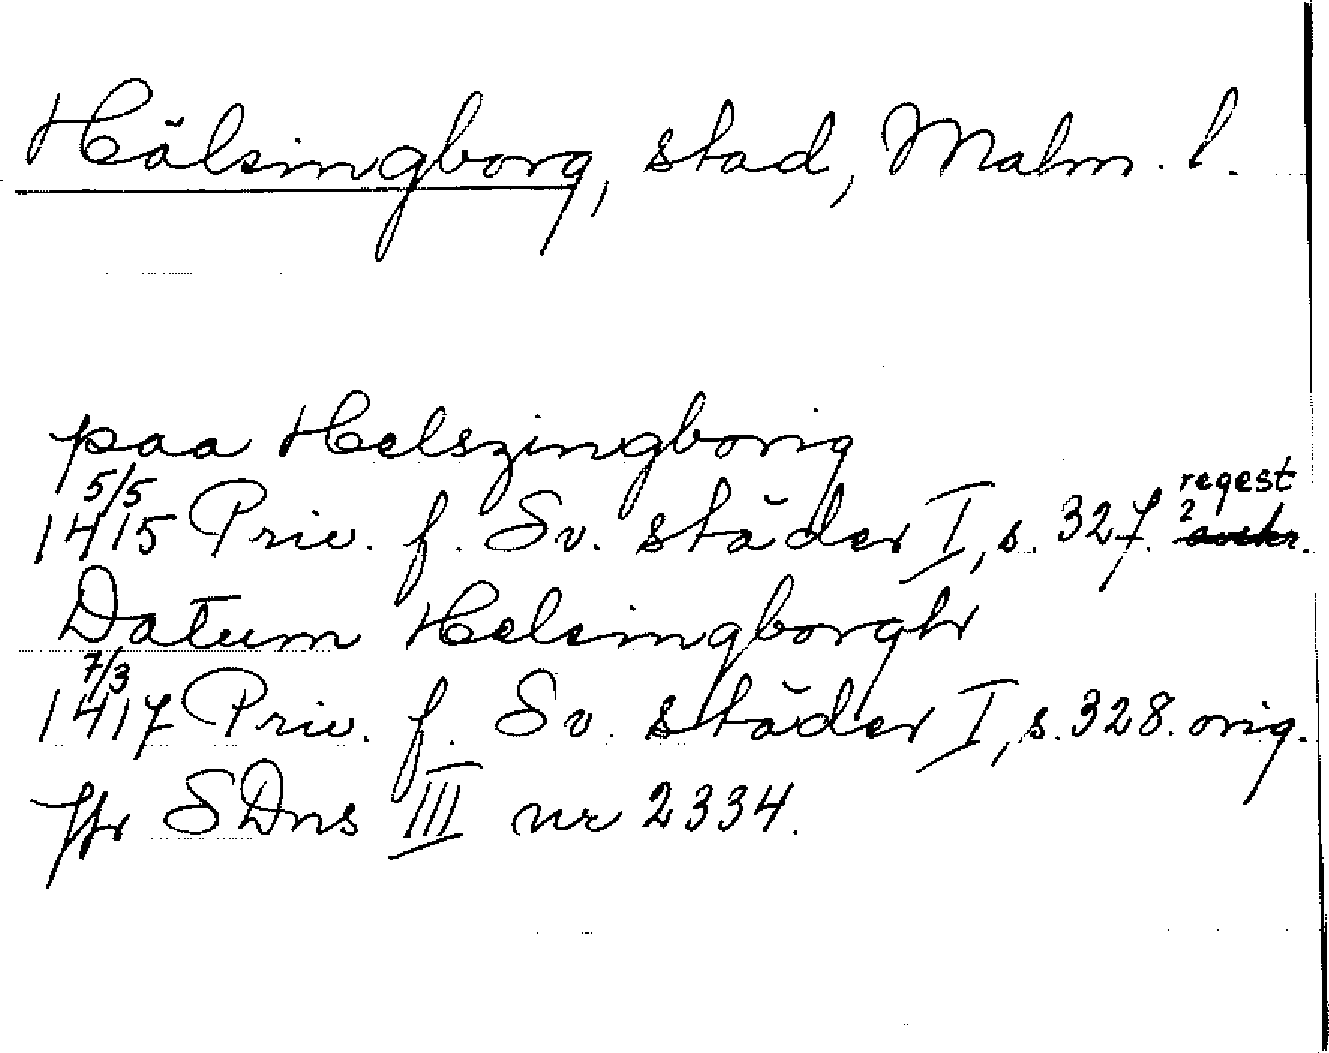 Hälsingborg, stad, Malm. l.
paa Helszingborig
5/5 regest
1415 Priv. f. Sv. städer I, s. 327. 2 avskr.
Datum Helsingborgh
7/3
1417 Priv. f. Sv. städer I, s. 328. orig.
Jfr SDns III nr 2334.